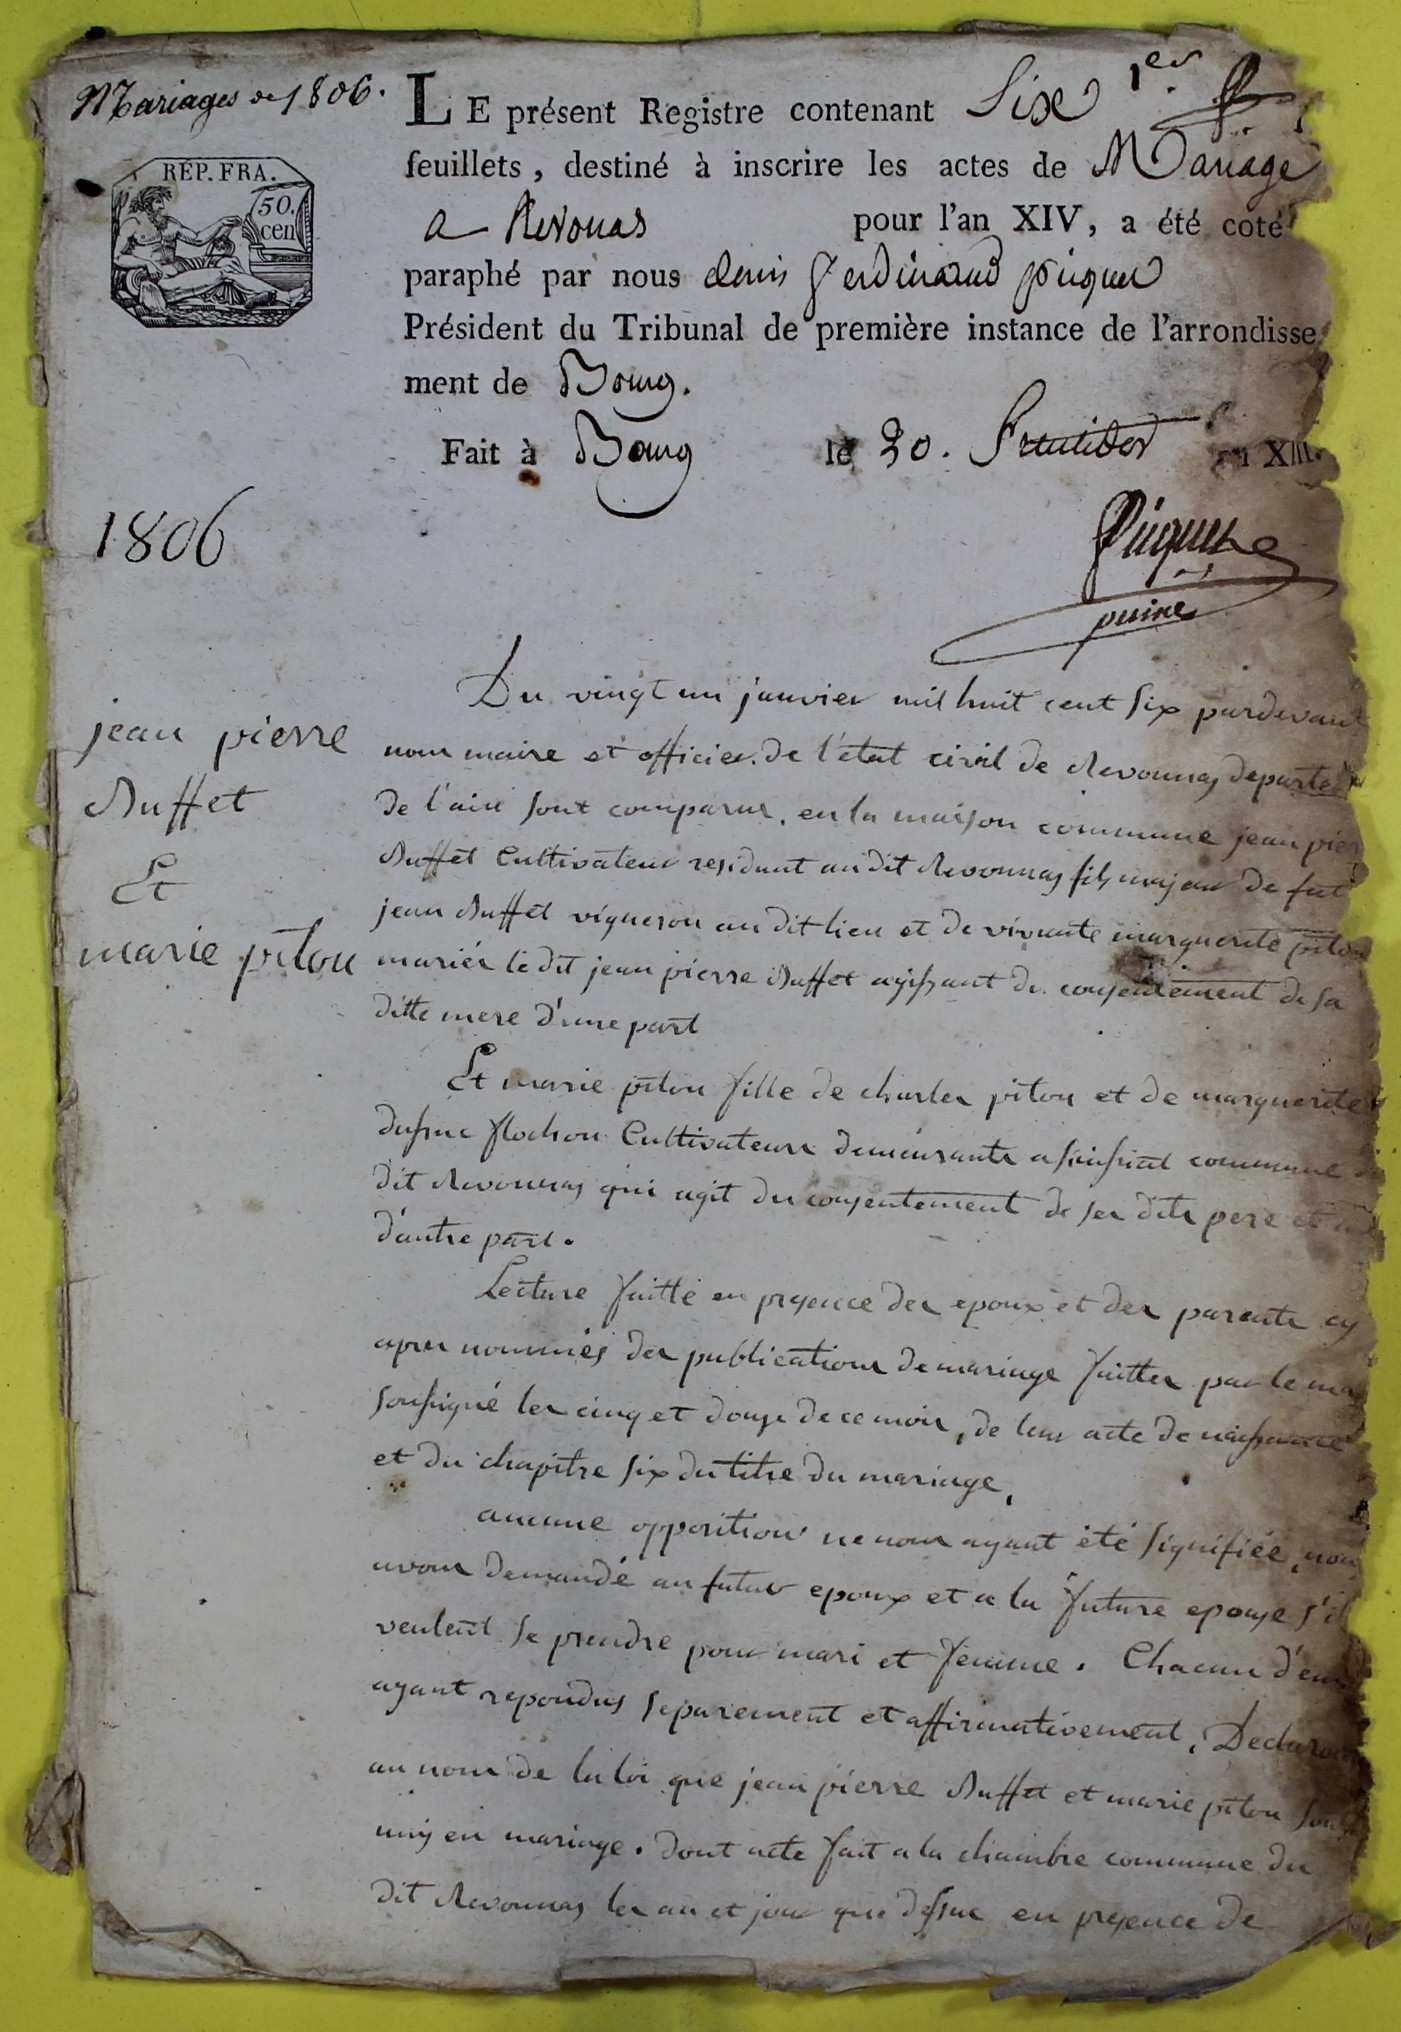 Mariages de 1806.
RÉP. FRA.
50.
cen
1er
LE présent Registre contenant Six
feuillets, destiné à inscrire les actes de Mariage
a Revonas pour l'an XIV, a été coté
paraphé par nous denis ferdinand picquet
Président du Tribunal de première instance de l'arrondisse
ment de Bourg.
Fait à Bourg le 30. fructidor an XIII.
1806
Picquet
puine
jean pierre
Buffet
Et
marie piton
Du vingt un janvier mil huit cent six pardevant
nous maire et officier de l'état civil de Revonnas departe
de l'ain sont comparus, en la maison commune jean pier
Buffet Cultivateur residant au dit Revonnas fils majeur de fut
jean Buffet vigneron au dit lieu et de vivante marguerite piton
mariés le dit jean pierre Buffet agissant du consentement de sa
ditte mere d'une part
Et marie piton fille de charles piton et de marguerite
Cultivateurs demeurants a commune
dit Revonnas qui agit du consentement de ses dits pere et
d'autre part.
Lecture faitte en presence des epoux et des parents cy
apres nommés des publications de mariage faittes par le ma
soussigné les cinq et douze de ce mois, de leur acte de naissance
et du chapitre six du titre du mariage,
aucune opposition ne nous ayant été signifiée, nous
avons demandé au futur epoux et a la future epouse s'il
veulent se prendre pour mari et femme. Chacun d'eux
ayant repondus separement et affirmativement, Declarons
au nom de la loi que jean pierre Buffet et marie piton sont
unis en mariage. dont acte fait a la chambre commune du
dit Revonnas les an et jour que dessus en presence de